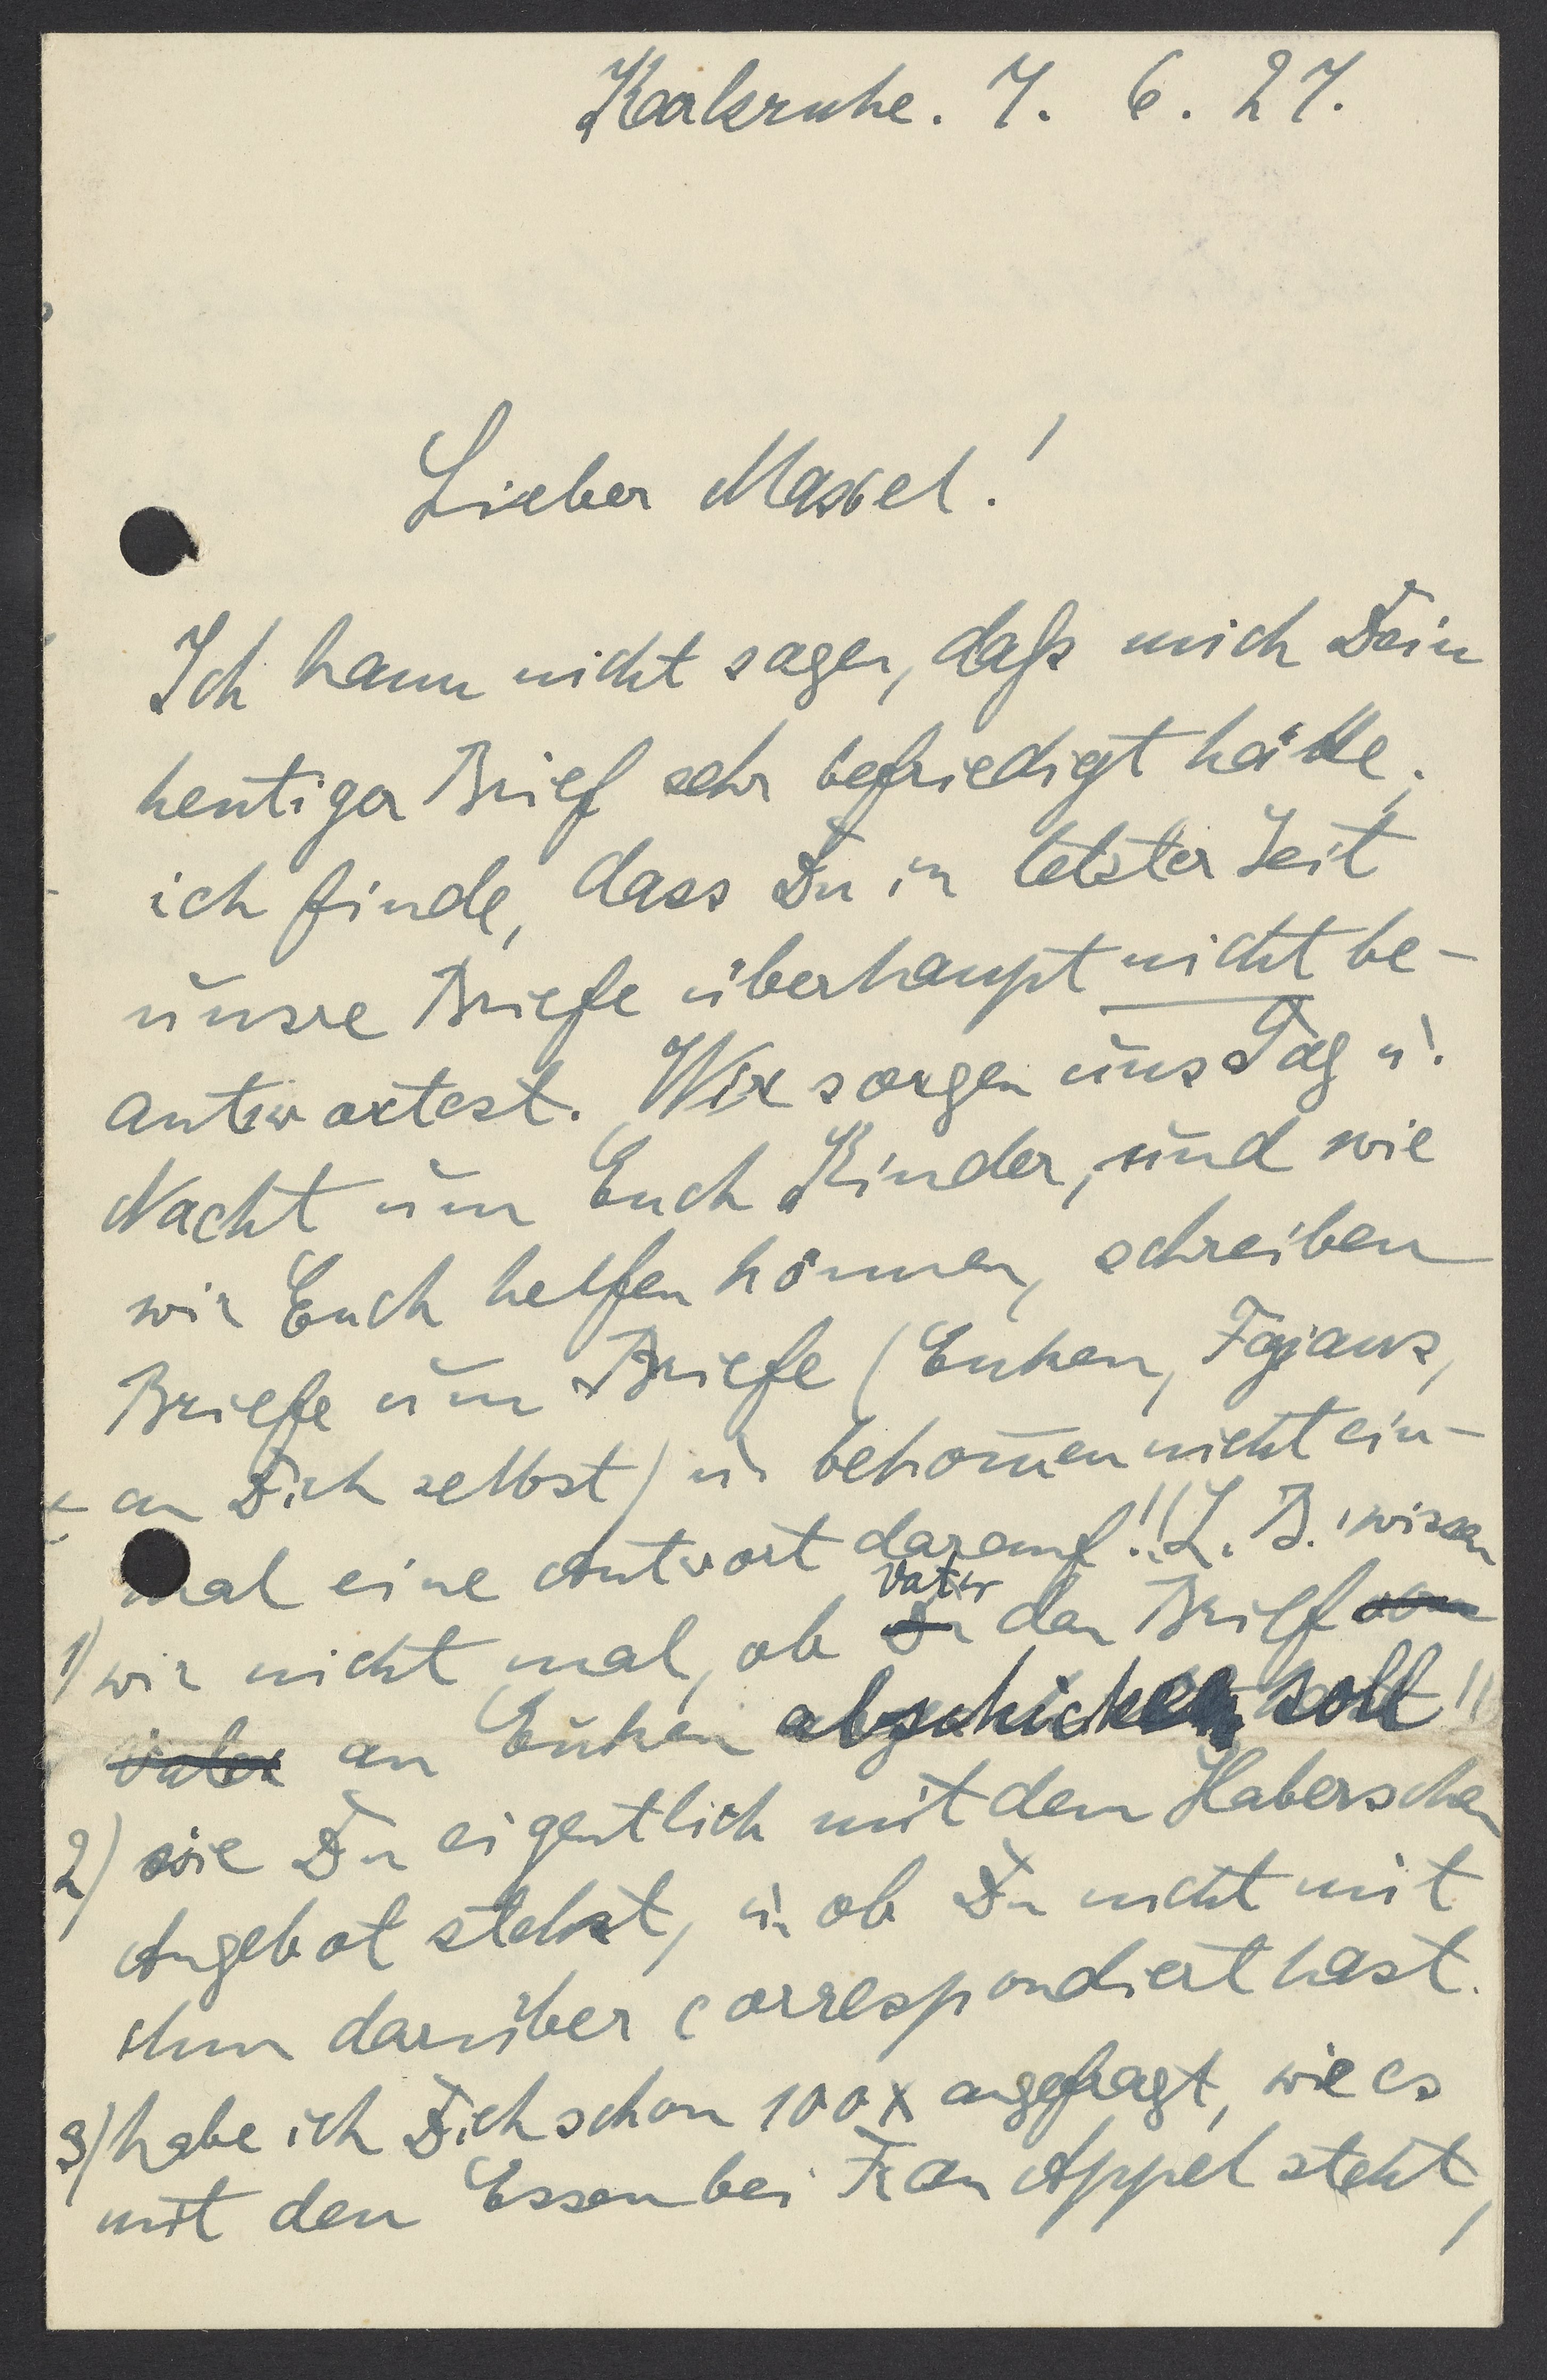 Karlsruhe. 7. 6. 27.
Lieber Maxel!
Ich kann nicht sagen, daß mich Dein
heutiger Brief sehr befriedigt hätte;
ich finde, dass Du in letzter Zeit
unsre Briefe überhaupt nicht be-
antwortest. Wir sorgen uns Tag u.
Nacht um Euch Kinder, und wie
wir Euch helfen können, schreiben
Briefe um Briefe (Euken, Fajans,
an Dich selbst) u. bekommen nicht ein-
mal eine Antwort darauf!! Z. B. wissen
1) wir nicht mal, ob Vater den Brief
an Euken abschicken soll!!
2) wie Du eigentlich mit dem Haberschen
Angebot stehst, u. ob Du nicht mit
ihm darüber correspondiert hast.
3) habe ich Dich schon 100x angefragt, wie es
mit den Essen bei Frau Appel steht,